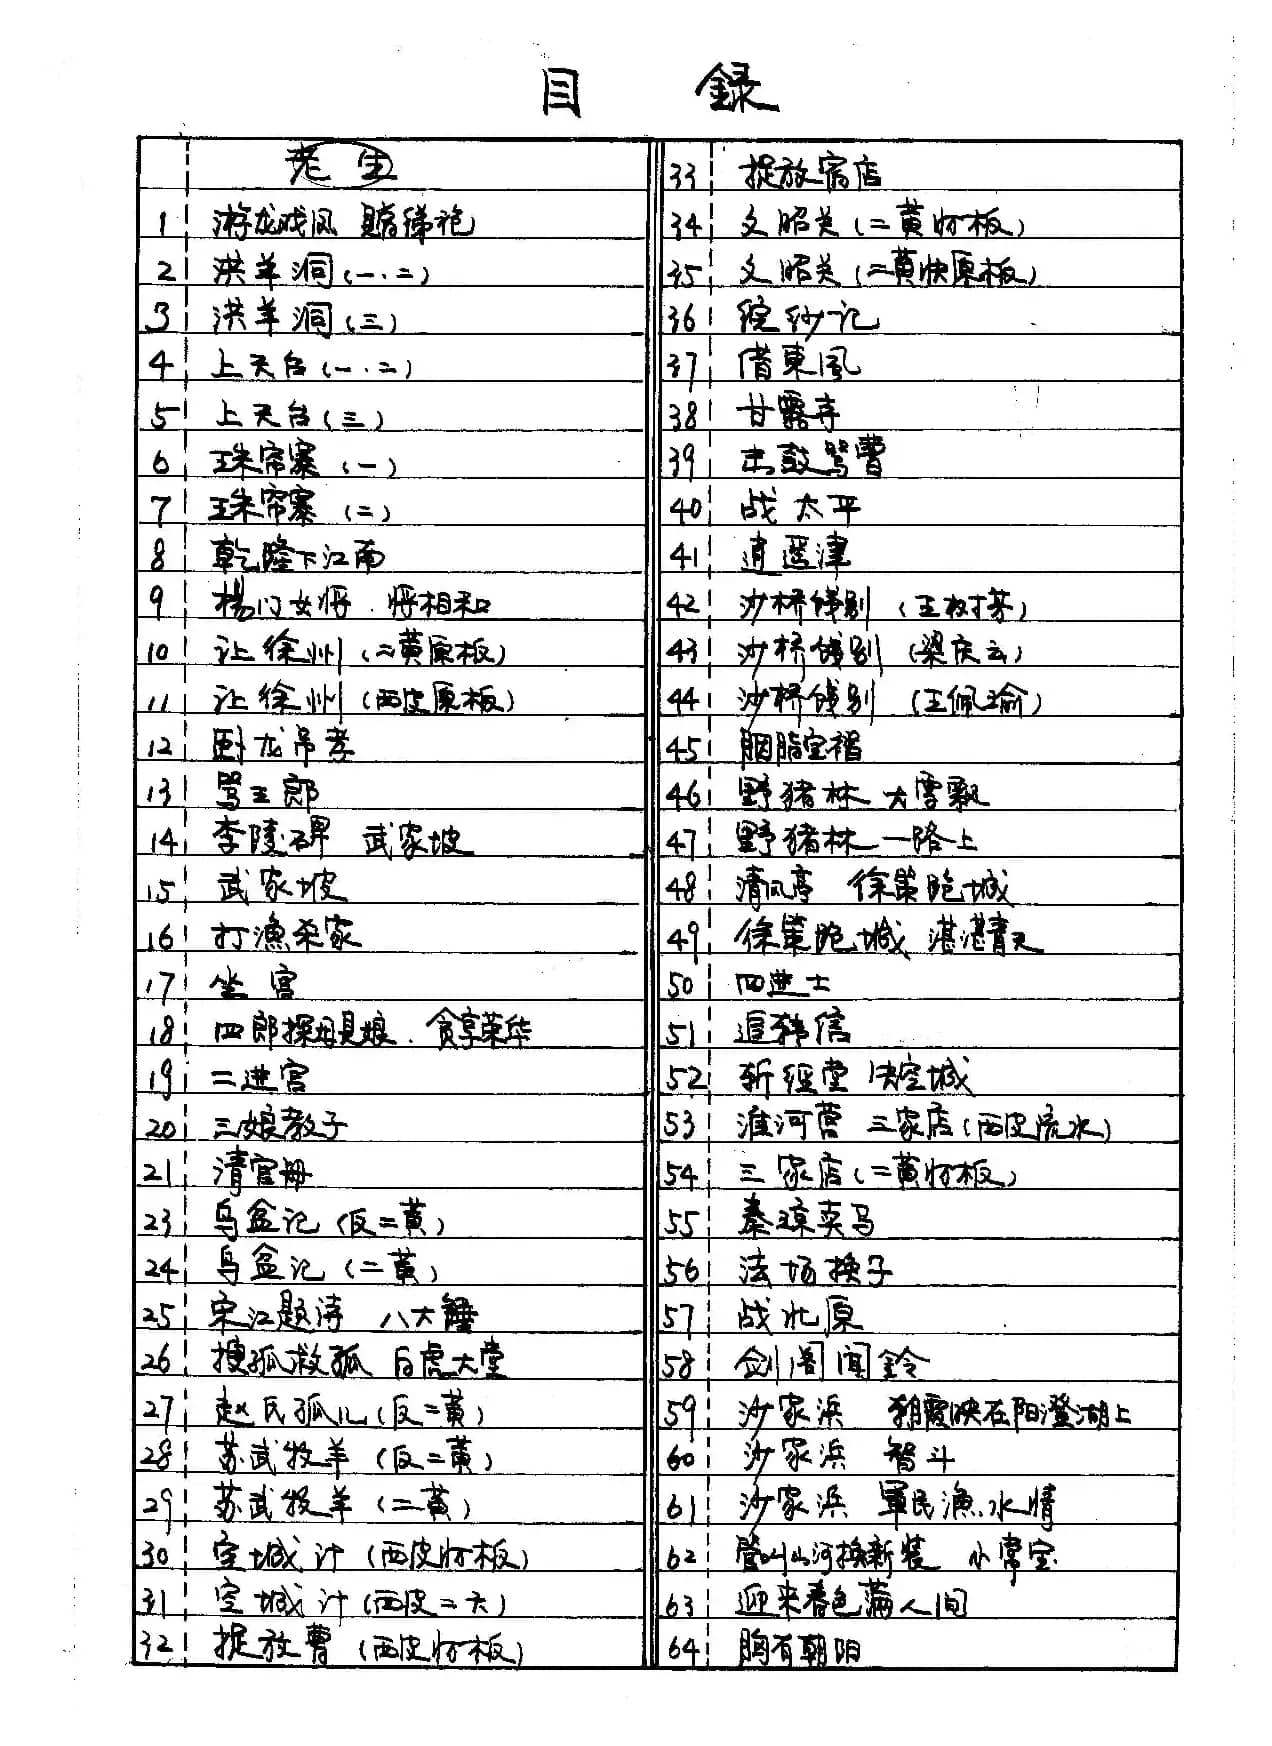 目 録
老生
1 游龙戏凤 赠绨袍
2 洪羊洞(一.二)
3 洪羊洞(三)
4 上天台(一.二)
5 上天台(三)
6 珠帘寨(一)
7 珠帘寨(二)
8 乾隆下江南
9 杨门女将.将相和
10 让徐州(二黄原板)
11 让徐州(西皮原板)
12 卧龙吊孝
13 骂王郎
14 李陵碑 武家坡
15 武家坡
16 打漁杀家
17 坐宫
18 四郎探母見娘.贪享荣华
19 二进宫
20 三娘教子
21 清官册
23 乌盆记(反二黄)
24 乌盆记(二黄)
25 宋江题诗 八大锤
26 搜孤救孤 白虎大堂
27 赵氏孤儿(反二黄)
28 苏武牧羊(反二黄)
29 苏武牧羊(二黄)
30 空城计(西皮忄板)
31 空城计(西皮二六)
32 捉放曹(西皮忄板)
33 捉放宿店
34 文昭关(二黄忄板)
35 文昭关(二黄快原板)
36 浣纱记
37 借東風
38 甘露寺
39 击鼓骂曹
40 战太平
41 逍遥津
42 沙桥饯别(王树芳)
43 沙桥饯别(梁庆云)
44 沙桥饯别(王佩瑜)
45 胭脂宝褶
46 野猪林 大雪飘
47 野猪林 一路上
48 清风亭 徐策跑城
49 徐策跑城 湛湛青天
50 四进士
51 追韩信
52 斩經堂 失空城
53 淮河营 三家店(西皮流水)
54 三家店(二黄忄板)
55 秦琼卖马
56 法场换子
57 战北原
58 剑阁闻鈴
59 沙家浜 朝霞映在阳澄湖上
60 沙家浜 智斗
61 沙家浜 軍民漁水情
62 管叫山河换新装 小常宝
63 迎来春色满人间
64 胸有朝阳